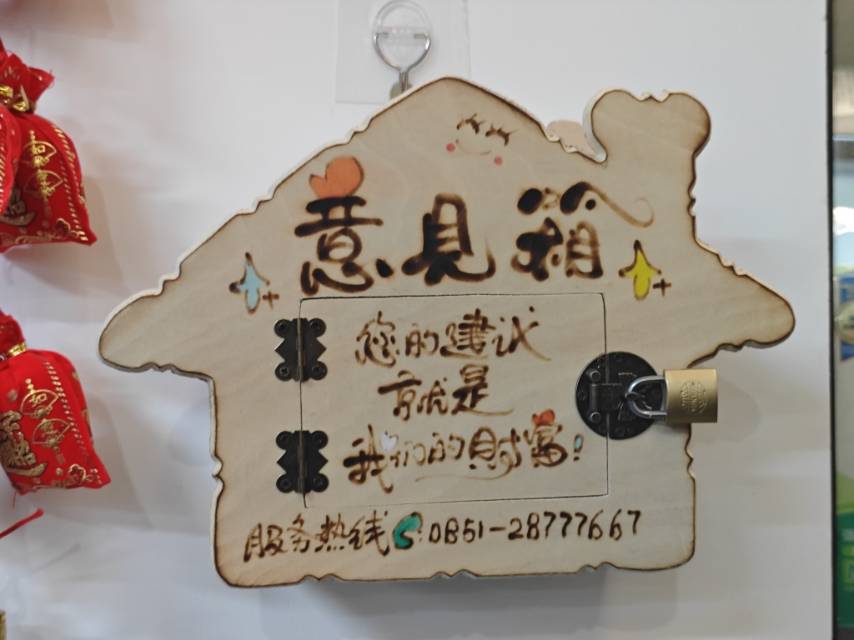 意见箱
您的建议
就是
我们的财富!
服务热线:0851-28777667